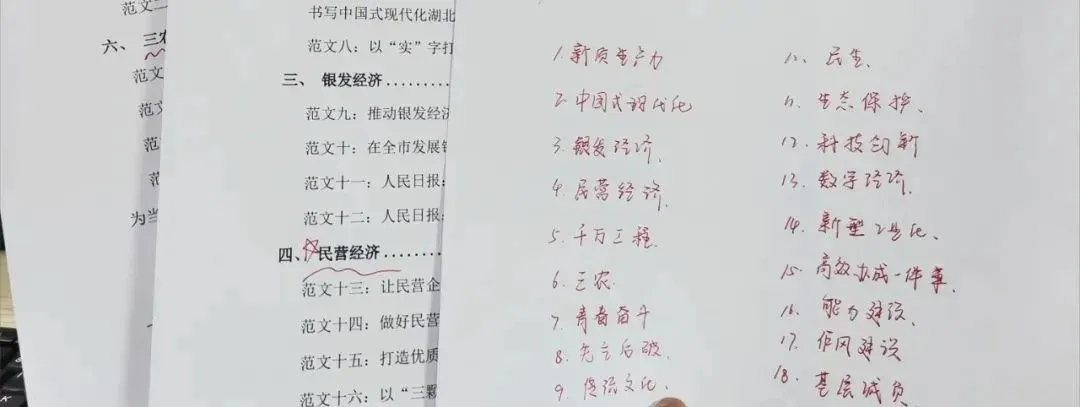 范文二
六、 三农
范文
范文
范文
范
为当
书写中国式现代化湖北
范文八：以“实”字打
三、 银发经济........
范文九：推动银发经济
范文十：在全市发展银
范文十一：人民日报：
范文十二：人民日报：
四、 民营经济........
范文十三：让民营企
范文十四：做好民营
范文十五：打造优质
范文十六：以“三颗
1. 新质生产力
2. 中国式现代化
3. 银发经济.
4. 民营经济.
5. 千万工程.
6. 三农.
7. 青春奋斗
8. 先立后破.
9. 传统文化.
10. 民生.
11. 生态保护、
12. 科技创新
13. 数字经济.
14. 新型工业化、
15. 高效办成一件事.
16. 能力建设.
17. 作风建设
18. 基层减负